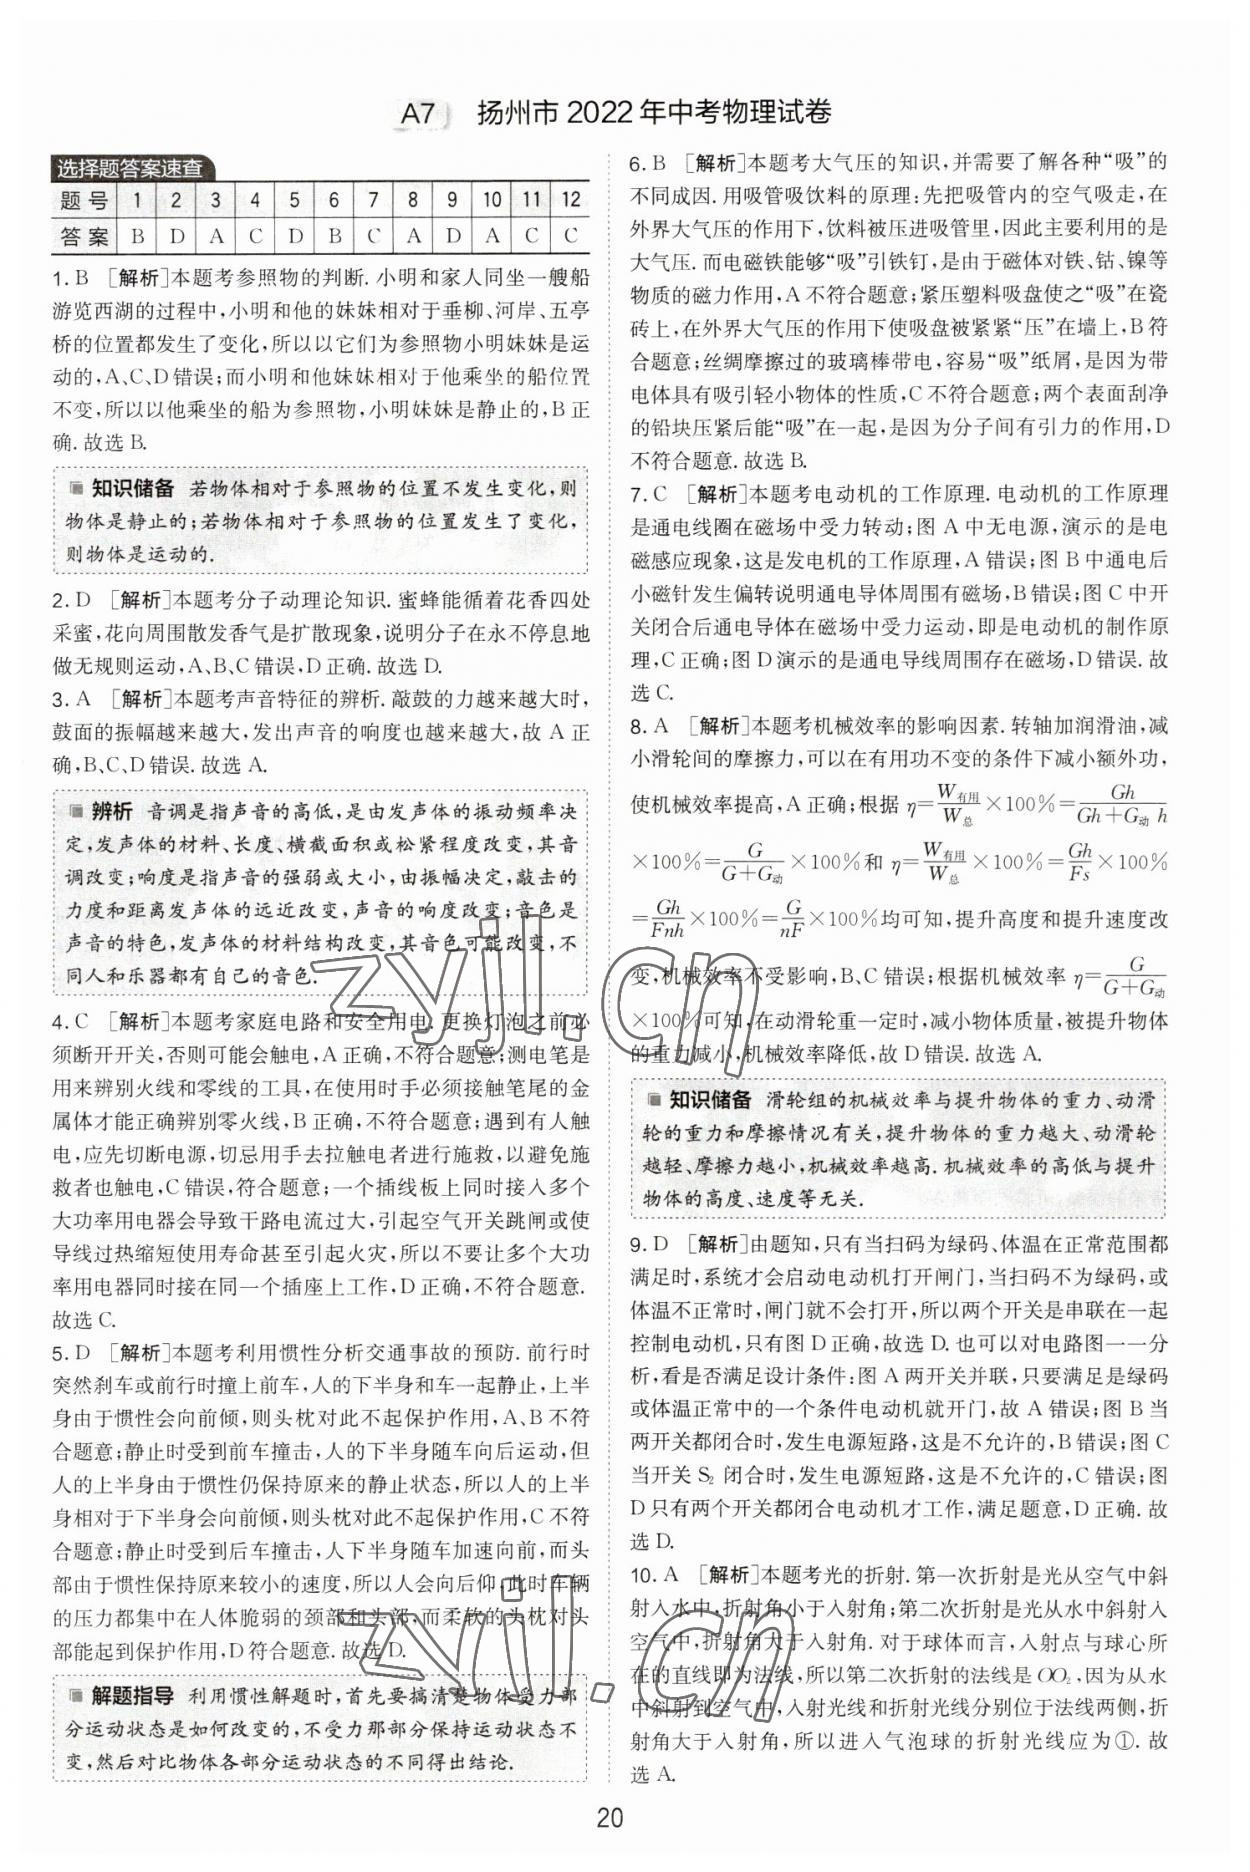 A7 扬州市 2022 年中考物理试卷
选择题答案速查
题号 1 2 3 4 5 6 7 8 9 10 11 12
答案 B D A C D B C A D A C C
1. B [解析]本题考参照物的判断. 小明和家人同坐一艘船
游览西湖的过程中,小明和他的妹妹相对于垂柳、河岸、五亭
桥的位置都发生了变化,所以以它们为参照物小明妹妹是运
动的,A、C、D 错误;而小明和他妹妹相对于他乘坐的船位置
不变,所以以他乘坐的船为参照物,小明妹妹是静止的,B 正
确. 故选 B.
知识储备 若物体相对于参照物的位置不发生变化,则
物体是静止的;若物体相对于参照物的位置发生了变化,
则物体是运动的.
2. D [解析]本题考分子动理论知识. 蜜蜂能循着花香四处
采蜜,花向周围散发香气是扩散现象,说明分子在永不停息地
做无规则运动,A、B、C 错误,D 正确. 故选 D.
3. A [解析]本题考声音特征的辨析. 敲鼓的力越来越大时,
鼓面的振幅越来越大,发出声音的响度也越来越大,故 A 正
确,B、C、D 错误. 故选 A.
辨析 音调是指声音的高低,是由发声体的振动频率决
定,发声体的材料、长度、横截面积或松紧程度改变,其音
调改变;响度是指声音的强弱或大小,由振幅决定,敲击的
力度和距离发声体的远近改变,声音的响度改变;音色是
声音的特色,发声体的材料结构改变,其音色可能改变,不
同人和乐器都有自己的音色.
4. C [解析]本题考家庭电路和安全用电. 更换灯泡之前必
须断开开关,否则可能会触电,A 正确,不符合题意;测电笔是
用来辨别火线和零线的工具,在使用时手必须接触笔尾的金
属体才能正确辨别零火线,B 正确,不符合题意;遇到有人触
电,应先切断电源,切忌用手去拉触电者进行施救,以避免施
救者也触电,C 错误,符合题意;一个插线板上同时接入多个
大功率用电器会导致干路电流过大,引起空气开关跳闸或使
导线过热缩短使用寿命甚至引起火灾,所以不要让多个大功
率用电器同时接在同一个插座上工作,D 正确,不符合题意.
故选 C.
5. D [解析]本题考利用惯性分析交通事故的预防. 前行时
突然刹车或前行时撞上前车,人的下半身和车一起静止,上半
身由于惯性会向前倾,则头枕对此不起保护作用,A、B 不符
合题意;静止时受到前车撞击,人的下半身随车向后运动,但
人的上半身由于惯性仍保持原来的静止状态,所以人的上半
身相对于下半身会向前倾,则头枕对此不起保护作用,C 不符
合题意;静止时受到后车撞击,人下半身随车加速向前,而头
部由于惯性保持原来较小的速度,所以人会向后仰,此时车辆
的压力都集中在人体脆弱的颈部和头部,而柔软的头枕对头
部能起到保护作用,D 符合题意. 故选 D.
解题指导 利用惯性解题时,首先要搞清楚物体受力部
分运动状态是如何改变的,不受力那部分保持运动状态不
变,然后对比物体各部分运动状态的不同得出结论.
6. B [解析]本题考大气压的知识,并需要了解各种“吸”的
不同成因. 用吸管吸饮料的原理:先把吸管内的空气吸走,在
外界大气压的作用下,饮料被压进吸管里,因此主要利用的是
大气压. 而电磁铁能够“吸”引铁钉,是由于磁体对铁、钴、镍等
物质的磁力作用,A 不符合题意;紧压塑料吸盘使之“吸”在瓷
砖上,在外界大气压的作用下使吸盘被紧紧“压”在墙上,B 符
合题意;丝绸摩擦过的玻璃棒带电,容易“吸”纸屑,是因为带
电体具有吸引轻小物体的性质,C 不符合题意;两个表面刮净
的铅块压紧后能“吸”在一起,是因为分子间有引力的作用,D
不符合题意. 故选 B.
7. C [解析]本题考电动机的工作原理. 电动机的工作原理
是通电线圈在磁场中受力转动;图 A 中无电源,演示的是电
磁感应现象,这是发电机的工作原理,A 错误;图 B 中通电后
小磁针发生偏转说明通电导体周围有磁场,B 错误;图 C 中开
关闭合后通电导体在磁场中受力运动,即是电动机的制作原
理,C 正确;图 D 演示的是通电导线周围存在磁场,D 错误. 故
选 C.
8. A [解析]本题考机械效率的影响因素. 转轴加润滑油,减
小滑轮间的摩擦力,可以在有用功不变的条件下减小额外功,
使机械效率提高,A 正确;根据 η=W有用/W总×100%=Gh/(Gh+G动h)
×100%=G/(G+G动)×100%和 η=W有用/W总×100%=Gh/Fs×100%
=Gh/Fnh×100%=G/nF×100%均可知,提升高度和提升速度改
变,机械效率不受影响,B、C 错误;根据机械效率 η=G/(G+G动)
×100%可知,在动滑轮重一定时,减小物体质量,被提升物体
的重力减小,机械效率降低,故 D 错误. 故选 A.
知识储备 滑轮组的机械效率与提升物体的重力、动滑
轮的重力和摩擦情况有关,提升物体的重力越大、动滑轮
越轻、摩擦力越小,机械效率越高. 机械效率的高低与提升
物体的高度、速度等无关.
9. D [解析]由题知,只有当扫码为绿码、体温在正常范围都
满足时,系统才会启动电动机打开闸门,当扫码不为绿码,或
体温不正常时,闸门就不会打开,所以两个开关是串联在一起
控制电动机,只有图 D 正确,故选 D. 也可以对电路图一一分
析,看是否满足设计条件:图 A 两开关并联,只要满足是绿码
或体温正常中的一个条件电动机就开门,故 A 错误;图 B 当
两开关都闭合时,发生电源短路,这是不允许的,B 错误;图 C
当开关 S₂ 闭合时,发生电源短路,这是不允许的,C 错误;图
D 只有两个开关都闭合电动机才工作,满足题意,D 正确. 故
选 D.
10. A [解析]本题考光的折射. 第一次折射是光从空气中斜
射入水中,折射角小于入射角;第二次折射是光从水中斜射入
空气中,折射角大于入射角. 对于球体而言,入射点与球心所
在的直线即为法线,所以第二次折射的法线是 OO₂,因为从水
中斜射到空气中,入射光线和折射光线分别位于法线两侧,折
射角大于入射角,所以进入气泡球的折射光线应为①. 故
选 A.
zyjl.cn
zyjl.cn
20